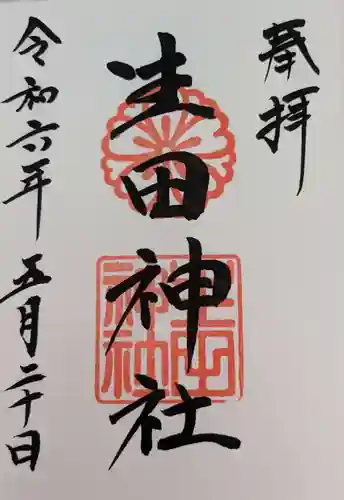 奉拝
生田神社
生田神社
令和六年 五月二十日